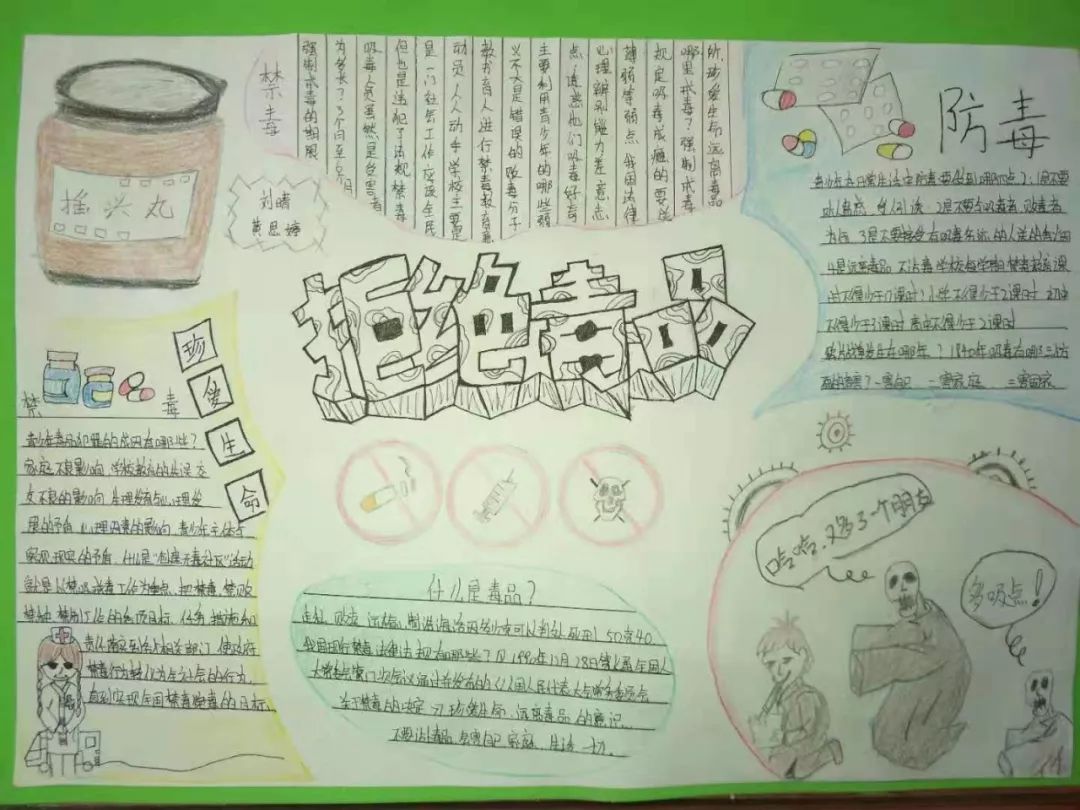 摇头丸
禁毒
刘晴
黄思婷
强制戒毒的期限
为多长?3个月至6个月
吸毒人员虽然是受害者
但也是违犯了法规禁毒
是一门社会工作应该全民
动员,人人动手学校主要是
教书育人进行禁毒教育意
义不大是错误的 贩毒分子
主要利用青少年的哪些弱
点诱惑他们吸毒好奇
心理辨别能力差、意志
薄弱等弱点 我国法律
规定吸毒成瘾的要送
哪里戒毒?强制戒毒
所,珍爱生命远离毒品
防毒
青少年在日常生活中防毒要做到哪几点?1是不要
2是不要与吸毒者、贩毒者
为伍 3是不要接受有吸毒
4是远离毒品 不沾毒 学校每学期禁毒教育课
时不得少于几课时?小学不得少于2课时 初中
不得少于3课时 高中不得少于2课时
鸦片战争发生在哪年?1840年 吸毒有哪三大方
面的危害?一害自己 二害家庭 三害国家
拒绝毒品
珍爱生命
禁毒
青少年毒品犯罪的原因有哪些?
家庭不良影响 学校教育的失误 交
友不良的影响 生理发育与心理发
展的矛盾 心理因素的影响
现实的矛盾 什么是“创建无毒社区”活动
就是以禁吸戒毒工作为重点,把禁毒、禁贩
禁种、禁制工作的各项目标、任务、措施和
责任落实到各相关部门 使政府
禁毒行为转化为全社会的行为,
直到实现全国禁毒除毒的目标。
什么是毒品?
走私、贩卖、运输、制造海洛因多少克可以判处死刑 50克40
我国现行禁毒法律法规有哪些?见1990年12月28日第七届全国人
大常委会第17次会议通过并发布的《全国人民代表大会常务委员会
关于禁毒的决定》 珍惜生命,远离毒品的意识
不要沾毒品,危害自己、家庭、生活一切.
哈哈,又多了一个朋友
多吸点!